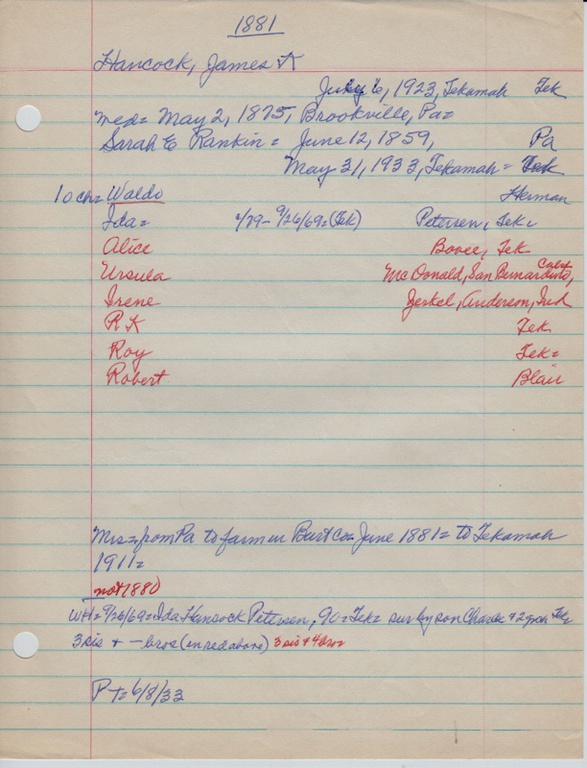 1881
Hancock, James K
July 6, 1923, Tekamah Tek
med= May 2, 1875, Brookville, Pa=
Sarah E Rankin = June 12, 1859, Pa
May 31, 1933, Tekamah = Tek
10 ch= Waldo Herman
Ida= 4/79- 9/26/69=(Tek) Petersen, Tek=
Alice Bovee, Tek
Ursula McDonald, San Bernardino, Calif
Irene Jerkel, Anderson, Ind
R K Tek
Roy Tek=
Robert Blair
Mrs=from Pa to farm in Burt Co= June 1881= to Tekamah
1911=
not 1880
WH= 9/26/69=Ida Hancock Petersen, 90=Tek= sur by son Charles + 2 gch Tek
3 sis + - bros (in red above) 3 sis + 4 bro=
P T= 6/8/33